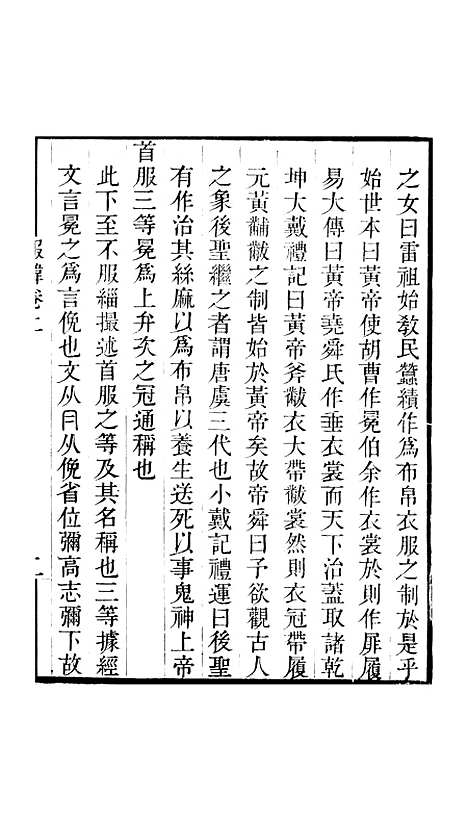 之女曰雷祖始敎民蠶績作爲布帛衣服之制於是乎
始世本曰黃帝使胡曹作冕伯余作衣裳於則作屝履
易大傳曰黃帝堯舜氏作垂衣裳而天下治蓋取諸乾
坤大戴禮記曰黃帝斧黻衣大帶黻裳然則衣冠帶履
元黃黼黻之制皆始於黃帝矣故帝舜曰予欲觀古人
之象後聖繼之者謂唐虞三代也小戴記禮運曰後聖
有作治其絲麻以爲布帛以養生送死以事鬼神上帝
首服三等冕爲上弁次之冠通稱也
此下至不服緇撮述首服之等及其名稱也三等據經
文言冕之爲言俛也文从冃从俛省位彌高志彌下故
卷上